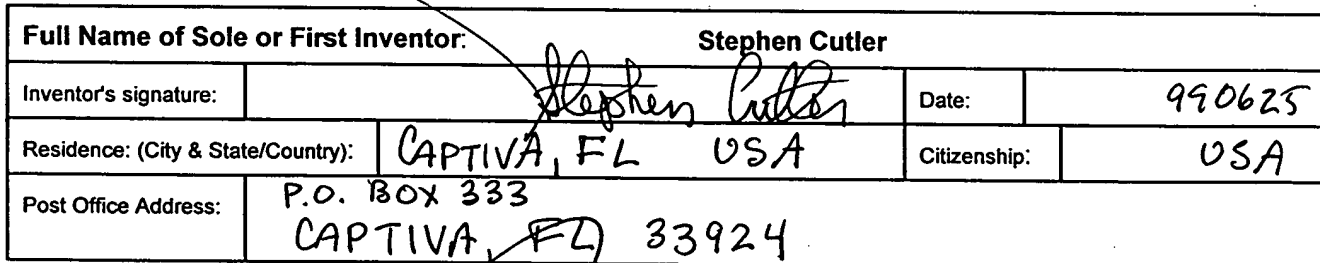 Full Name of Sole or First Inventor: Stephen Cutler
Inventor's signature: Stephen Cutler Date: 990625
Residence: (City & State/Country): CAPTIVA, FL USA Citizenship: USA
Post Office Address: P.O. BOX 333
CAPTIVA, FL 33924